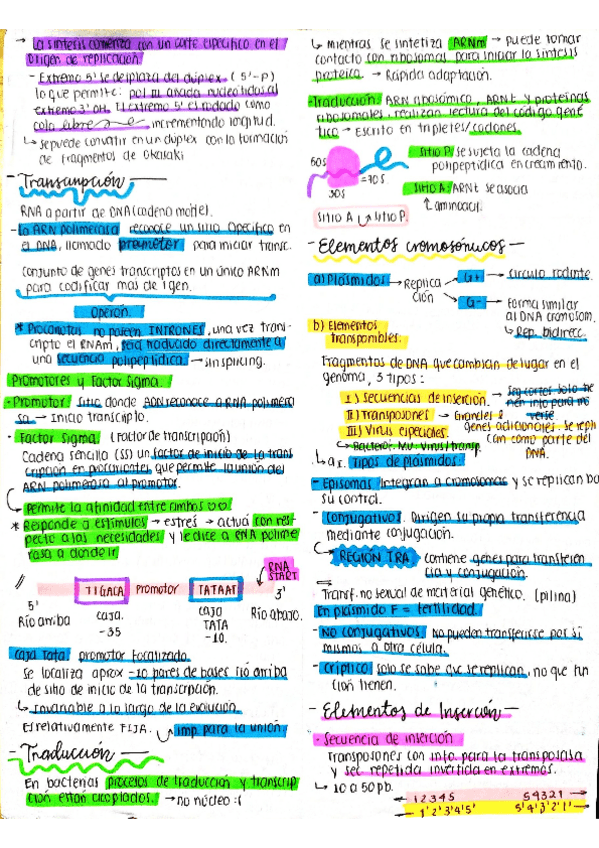 → La síntesis comienza con un corte especifico en el
origen de replicación
- Extremo 5' se desplaza del duplex (5'-P)
lo que permite: pol III añada nucleótidos al
extremo 3'OH. El extremo 5' el rodado como
cola libre incrementando longitud.
↳ se puede convertir en un dúplex con la formación
de fragmentos de Okasaki
- Transcripción
RNA a partir de DNA (cadena molde).
- La ARN polimerasa reconoce un sitio específico en
el DNA, llamado promotor para iniciar transc.
Conjunto de genes transcriptos en un único ARNm
para codificar mas de 1 gen.
Operón.
* Procariotas no poseen INTRONES, una vez trans-
cripto el RNAm, será traducido directamente a
una secuencia polipeptídica. → sin splicing.
Promotores y Factor Sigma.
- Promotor: Sitio donde ADN reconoce a RNA polimera
sa → Inicio transcripto.
- Factor Sigma (Factor de transcripción)
Cadena sencilla (SS) un factor de inicio de la trans
cripción en procariontes, que permite la unión del
ARN polimerasa al promotor.
↳ Permite la afinidad entre ambos
* Responde a estímulos → estrés → actua con res-
pecto a las necesidades y le dice a RNA polime
rasa a donde ir.
RNA
START
TTGACA promotor TATAAT
5' 3'
Río arriba Caja. Caja Río abajo.
-35 TATA
-10.
Caja Tata promotor focalizado.
Se localiza aprox -10 pares de bases río arriba
de sitio de inicio de la transcripción.
↳ Invariable a lo largo de la evolución.
Es relativamente FIJA. imp. para la unión
- Traducción
En bacterias procesos de traducción y transcrip
ción están acoplados. → no núcleo :(
↳ mientras se sintetiza ARNm → puede tomar
contacto con ribosomas para iniciar la síntesis
proteica → Rápida adaptación.
- Traducción: ARN ribosómico, ARNt y proteínas
ribosomales, realizan lectura del código gené
tico → Escrito en tripletes/codones.
50S
30S
=70S
Sitio P: Se sujeta la cadena
polipeptídica en crecimiento.
Sitio A: ARNt se asocia
↳ aminoacil.
Sitio A Sitio P.
- Elementos cromosónicos -
a) Plásmidos → Replica
ción
G+ → Circulo rodante.
G- → Forma similar
al DNA cromosom.
↳ Rep. bidirecc.
b) Elementos
transponibles.
Fragmentos de DNA que cambian de lugar en el
genoma, 3 tipos:
I) Secuencias de inserción. →
nen info para mo
verse.
II) Transposones → Grandes
genes adicionales. Se repli
can como parte del
DNA.
III) Virus especiales.
↳ Bacteriof. Mu: Virus/transp.
↳ Tipos de plásmidos.
- Episomas integran a cromosomas y se replican bo
su control.
- Conjugativos. Dirigen su propia transferencia
mediante conjugación.
↳ REGIÓN TRA contiene genes para transferen
cia y conjugación.
Transf. no sexual de material genético. (pilina)
En plásmido F = fertilidad.
- No conjugativos No pueden transferirse por si
mismos a otra célula.
- Criptico solo se sabe que se replican, no que fun
ción tienen.
- Elementos de Inserción -
- Secuencia de inserción.
Transposones con info. para la transposasa
y sec. repetida invertida en extremos.
↳ 10 a 50 pb.
← 12345 54321 →
← 1'2'3'4'5' 5'4'3'2'1' →